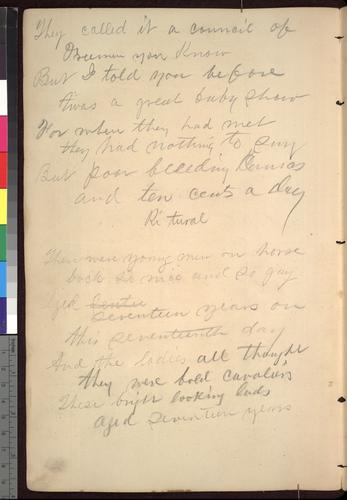 They called it a council of
Freemen you Know
But I told you before
twas a great baby show
For when they had met
they had nothing to say
But poor bleeding Kansas
and ten cents a day
Ri tural
There were young men on horse
back so nice and so gay
Aged
seventeen years on
this seventeenth day
And the ladies all thought
they were bold cavaliers
These bright looking lads
aged seventeen years